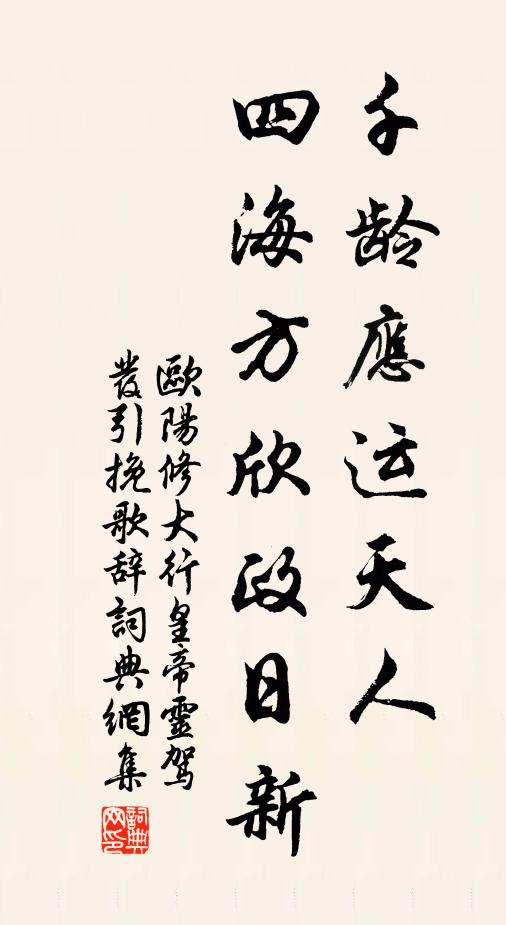 千龄應运天人
四海方欣政日新
歐陽修大行皇帝靈驾
發引挽歌辞詞典網集
詞典网印